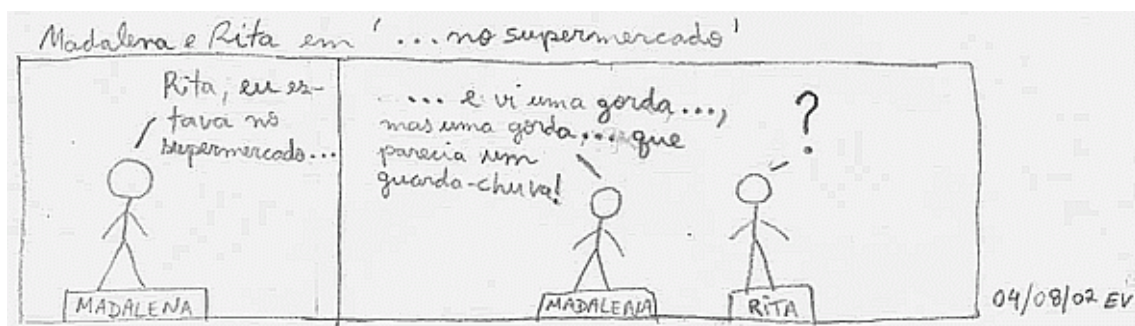 Madalena e Rita em '...no supermercado'
Rita, eu es-
tava no
supermercado...
... e vi uma gorda...,
mas uma gorda,... que
parecia um
guarda-chuva!
?
MADALENA
MADALENA
RITA
04/08/02 EV